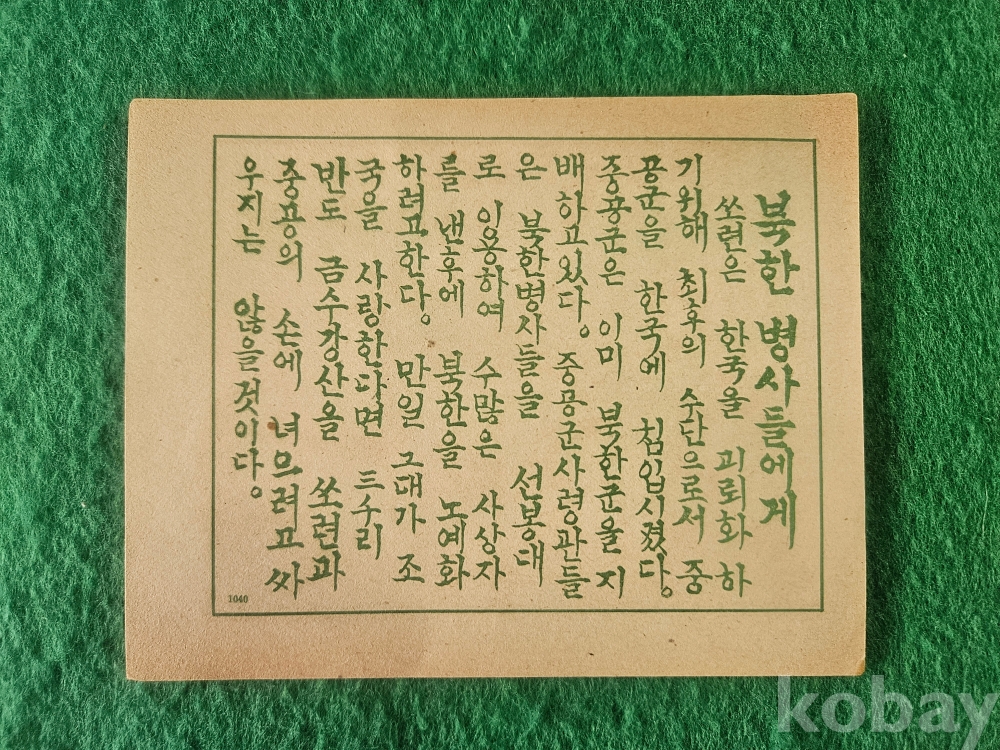 북한 병사들에게
쏘련은 한국을 괴뢰화 하
기위해 최후의 수단으로서 중
공군을 한국에 침입시켰다.
중공군은 이미 북한군을 지
배하고있다. 중공군사령관들
은 북한병사들을 선봉대
로 이용하여 수많은 사상자
를 낸후에 북한을 노예화
하려고한다. 만일 그대가 조
국을 사랑한다면 三수리
반도 금수강산을 쏘련과
중공의 손에 너므려고 싸
우지는 않을것이다.
1040
kobay